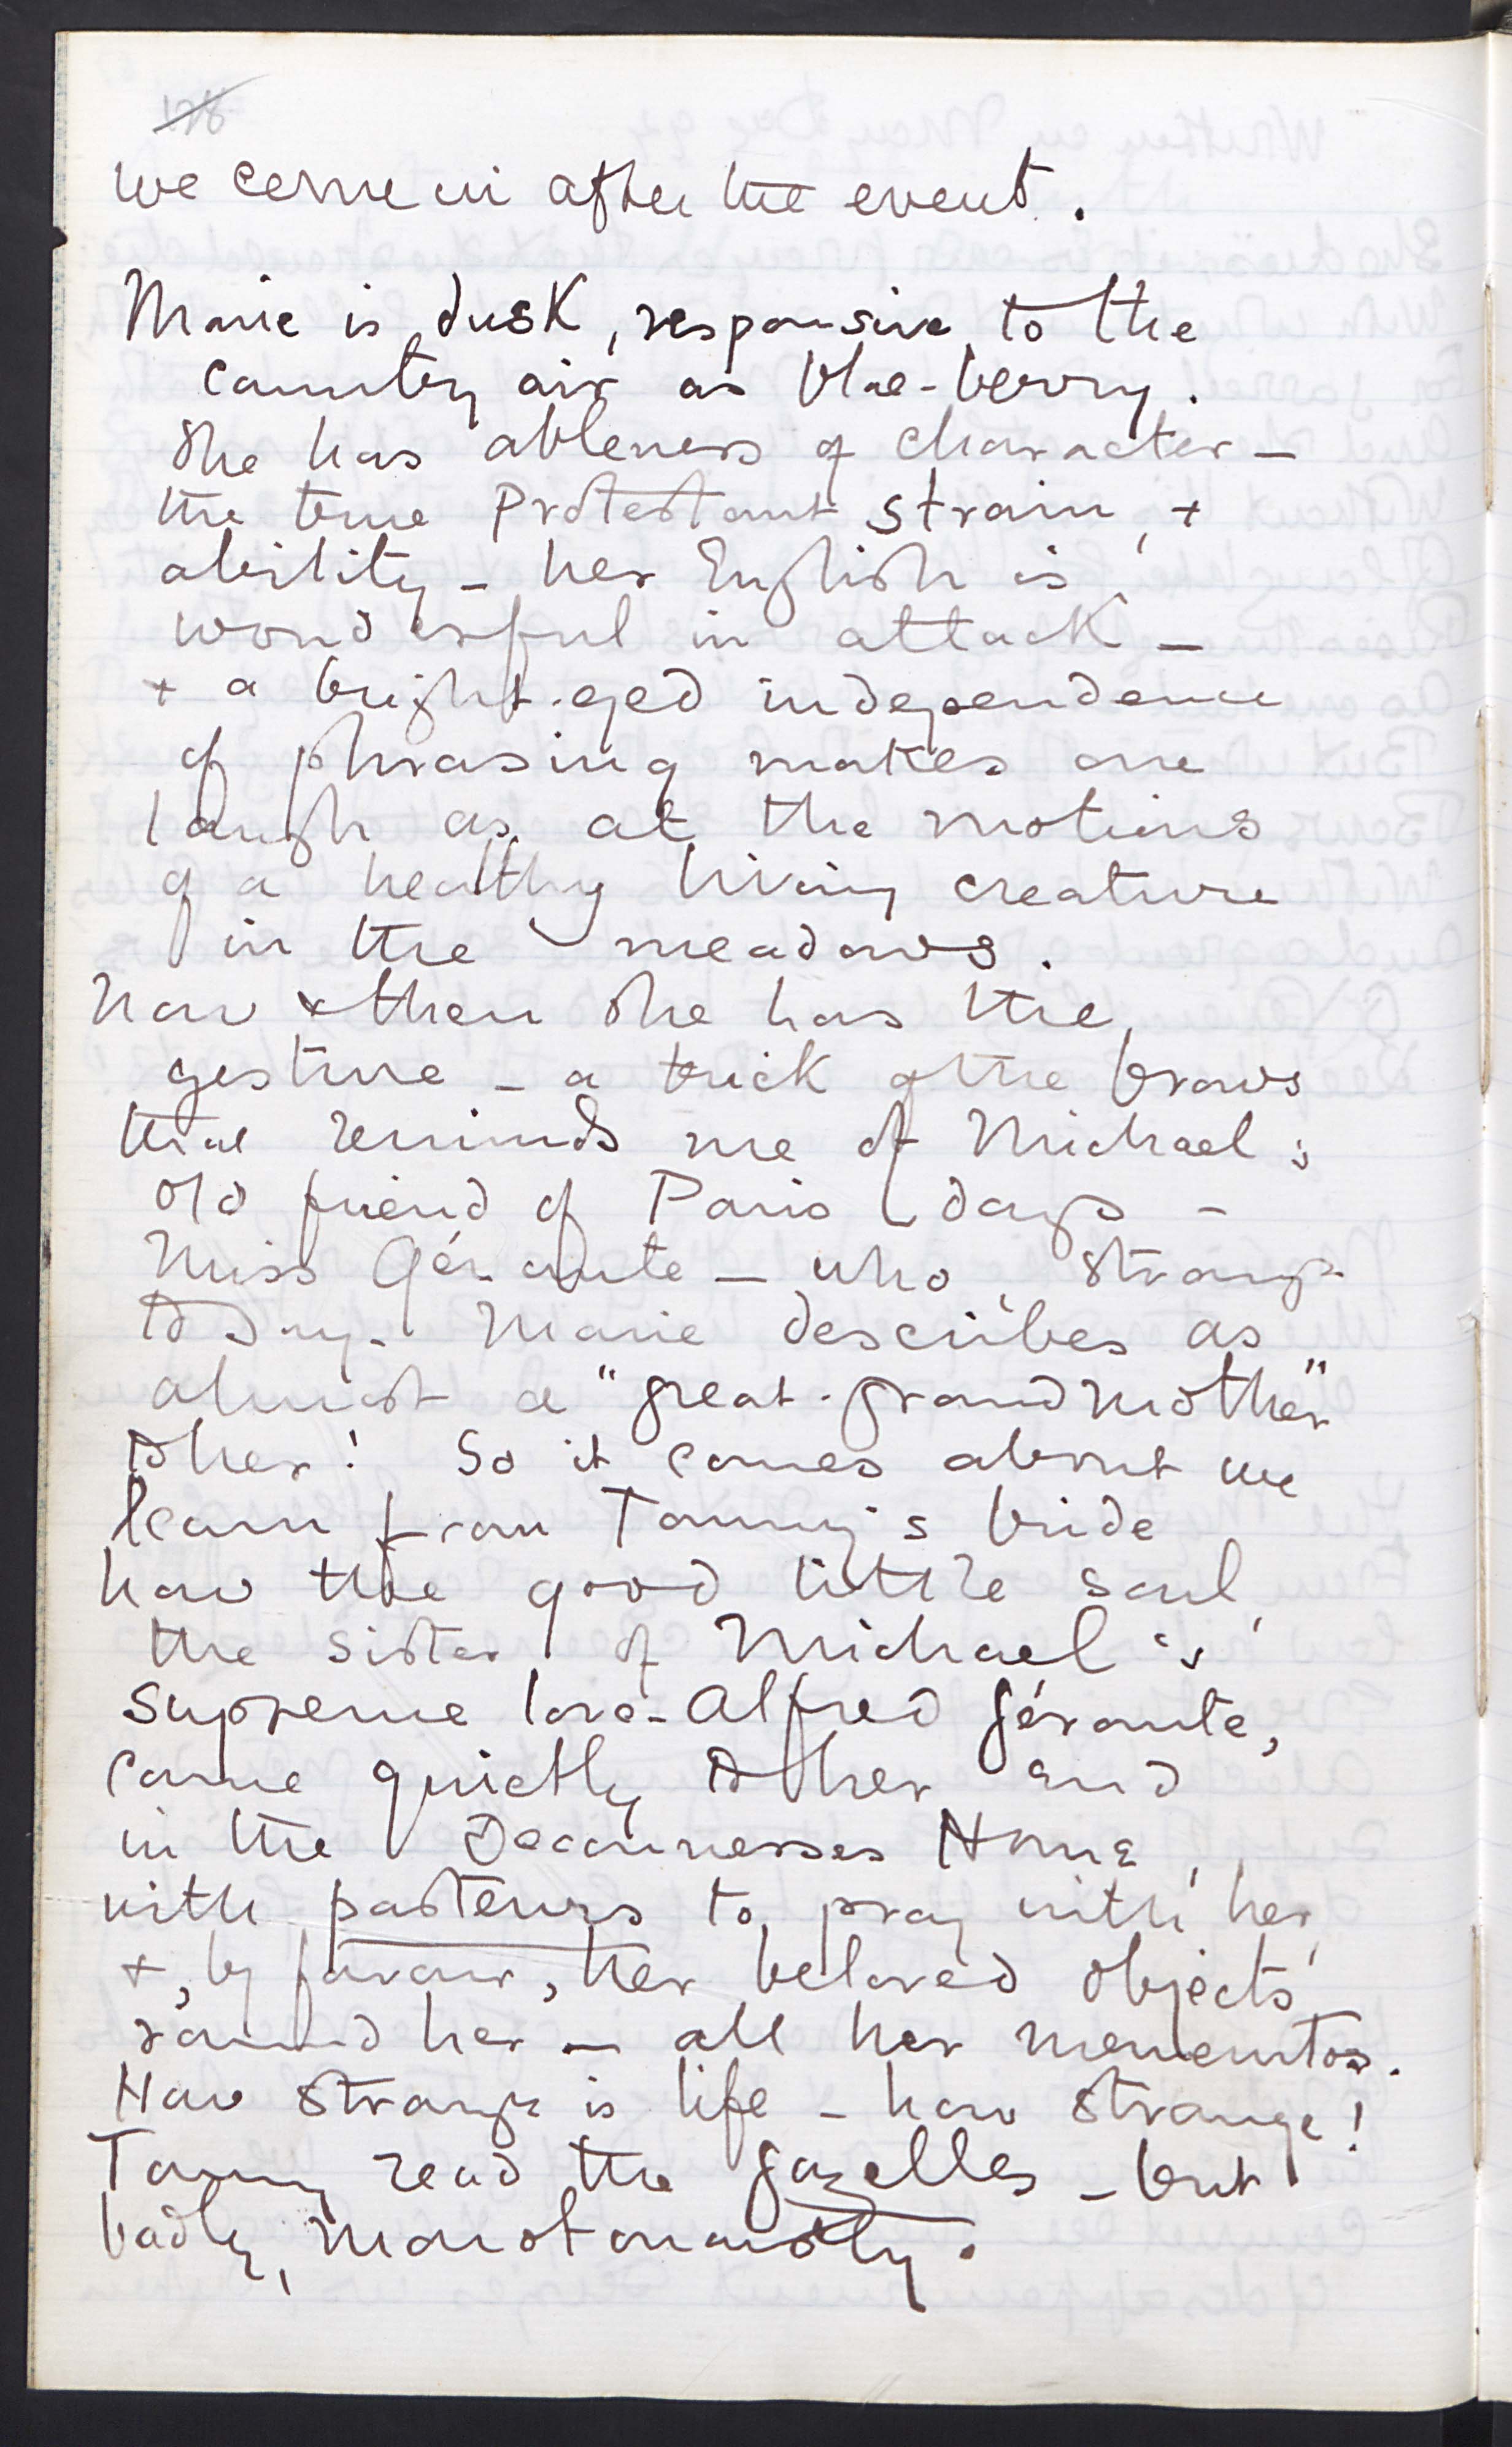 we come in after the event.
Marie is dusk, responsive to the
country air as blae-berry.
She has ableness of character –
the true Protestant strain, +
ability – her English is
wonderful in attack –
+ a bright-eyed independence
of phrasing makes one
laugh as at the motions
of a healthy living creature
in the meadows.
Now & then she has the
gesture – a trick of the brows
that reminds me of Michael's
old friend of Paris days –
Miss Gérante – who, strange
to say, Marie describes as
almost a "great-grandmother"
to her! So it comes about we
learn from Tommy's bride
how the good little soul,
the sister of Michael's
supreme love – Alfred Gérante,
came quietly to her end
in the Deaconnesses Home,
with pasteurs to pray with her,
+, by favour, her beloved objects
round her – all her mementos.
How strange is life – how strange!
Tommy read the gazelles – but
badly, monotonously.